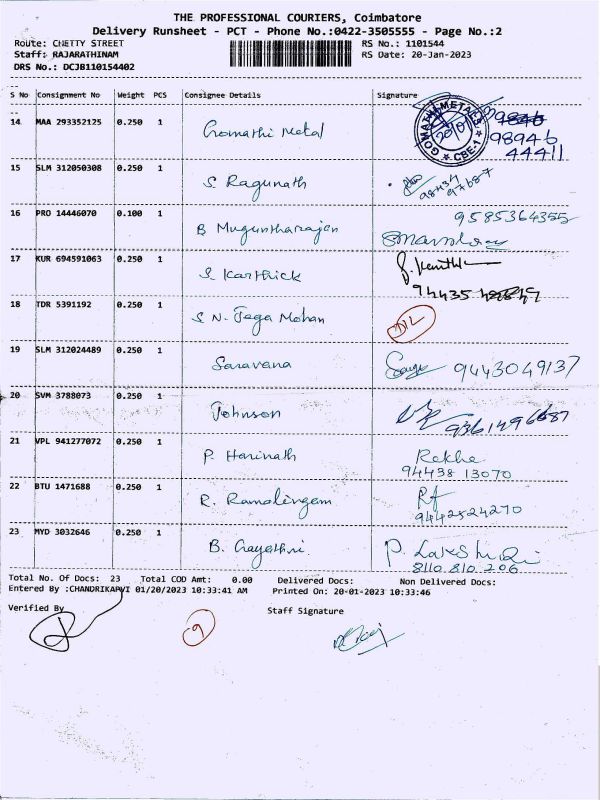 THE PROFESSIONAL COURIERS, Coimbatore
Delivery Runsheet - PCT - Phone No.:0422-3505555 - Page No.:2
Route: CHETTY STREET RS No.: 1101544
Staff: RAJARATHINAM RS Date: 20-Jan-2023
DRS No.: DCJB110154402
S No Consignment No Weight PCS Consignee Details Signature
14 MAA 293352125 0.250 1 Gomathi Metal 98946 44411
GOMATHI METALS CBE-1
15 SLM 312050308 0.250 1 S. Ragunath 98434 97687
16 PRO 14446070 0.100 1 B Muguntharajan 9585364355
17 KUR 694591063 0.250 1 S Karthick S. Karthik
94435
18 TDR 5391192 0.250 1 S N. Jega Mohan D/L
19 SLM 312024489 0.250 1 Saravana 9443049137
20 SVM 3788073 0.250 1 Johnson 9361496687
21 VPL 941277072 0.250 1 P. Harinath Rekha
94438 13070
22 BTU 1471688 0.250 1 R. Ramalingam
9442524270
23 MYD 3032646 0.250 1 B. Gayathri P. Lakshmi
8110 810 206
Total No. Of Docs: 23 Total COD Amt: 0.00 Delivered Docs: Non Delivered Docs:
Entered By :CHANDRIKARVI 01/20/2023 10:33:41 AM Printed On: 20-01-2023 10:33:46
Verified By Staff Signature
9